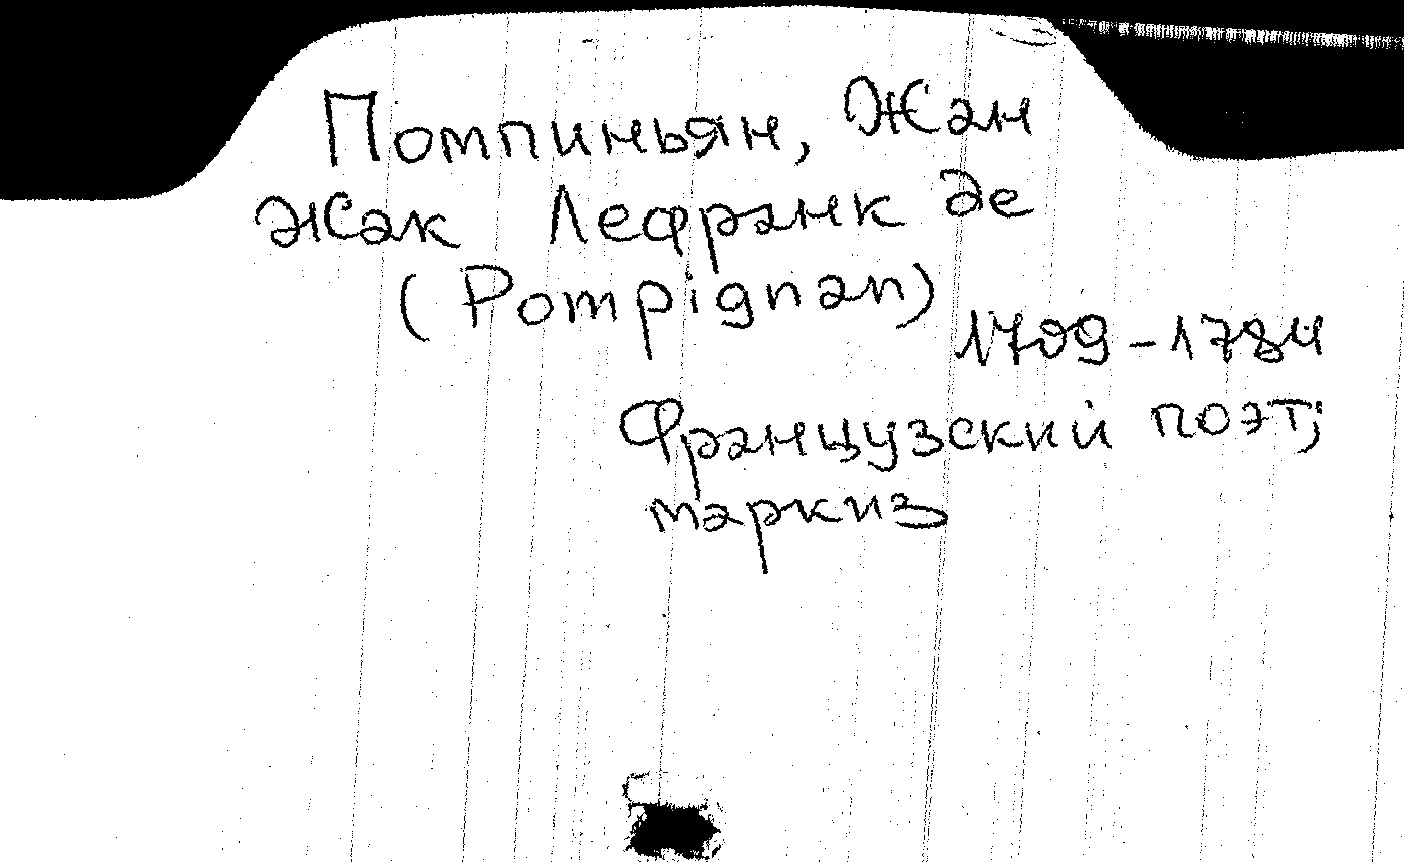 Помпиньян, Жан
Жак Лефранк де
(Pompignan)
1709-1784
Французский поэт,
маркиз